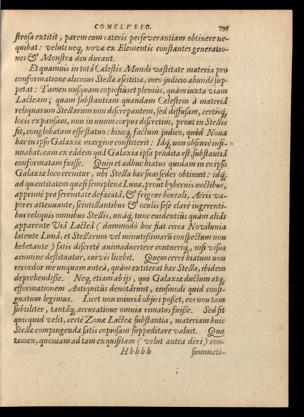 CONCLVSIO. 795
strosa extitit, parem cum cæteris perseverantiam obtinere ne-
quibat: velut neq, novæ ex Elementis constantes generatio-
nes & Monstra diu durant.
Et quamvis in totâ Cœlestis Mundi vastitate materia pro
conformatione alicuius Stellæ ascititiæ, meo judicio abunde sup-
petat: Tamen nusquam copiosius et plenius, quàm iuxta viam
Lacteam; quam substantiam quandam Cœlestem à materiâ
reliquarum Stellarum non discrepantem, sed diffusam, certisq,
locis expansam, non in unum corpus discretim, prout in Stellis
fit, conglobatam esse statuo: hincq, factum judico, quòd Nova
hæc in ipso Galaxiæ margine constiterit: Idq, non obscurè insi-
nuabat, eam ex eâdem quâ Galaxia ipsa prædita est substantiâ
conformatam fuisse. Quin et adhuc hiatus quidam in eo ipso
Galaxiæ loco cernitur, ubi Stella hæc suas sedes obtinuit: idq,
ad quantitatem quasi semiplenæ Lunæ, prout hybernis noctibus,
apprimè per serenitate defæcatâ, & frigore boreali, Aëris va-
pores attenuante, scintillantibus & oculis sese clarè ingerenti-
bus reliquis omnibus Stellis, iniâq, tunc evidentiùs quàm aliàs
apparente Viâ Lacteâ (dummodo hoc fiat circa Novilunia
latente Lunâ, et Stellarum vel minutissimaris conspectum non
hebetante) satis discretè animadvertere contuerq, nisi visus
acumine destituatur, cuivis licebit. Quem certè hiatum non
recordor me unquam anteà, quàm extiterat hæc Stella, ibidem
deprehendisse. Neq, etiam ab ijs, qui Galaxiæ ductum atq,
efformationem Antiquitùs denotârunt, eiusmodi quid consi-
gnatum legimus. Licet non mirariâ objici posset, eos non tam
subtiliter, tantâq, accuratione omnia rimatos fuisse. Sed sit
quicquid velit, certè Zona Lacteæ substantia, materiam huic
Stellæ compingendæ satis copiosam suppeditare valuit. Quæ
tamen, quoniam ad tam exquisitam (velut antea dixi) con-
Hhhhh summati-